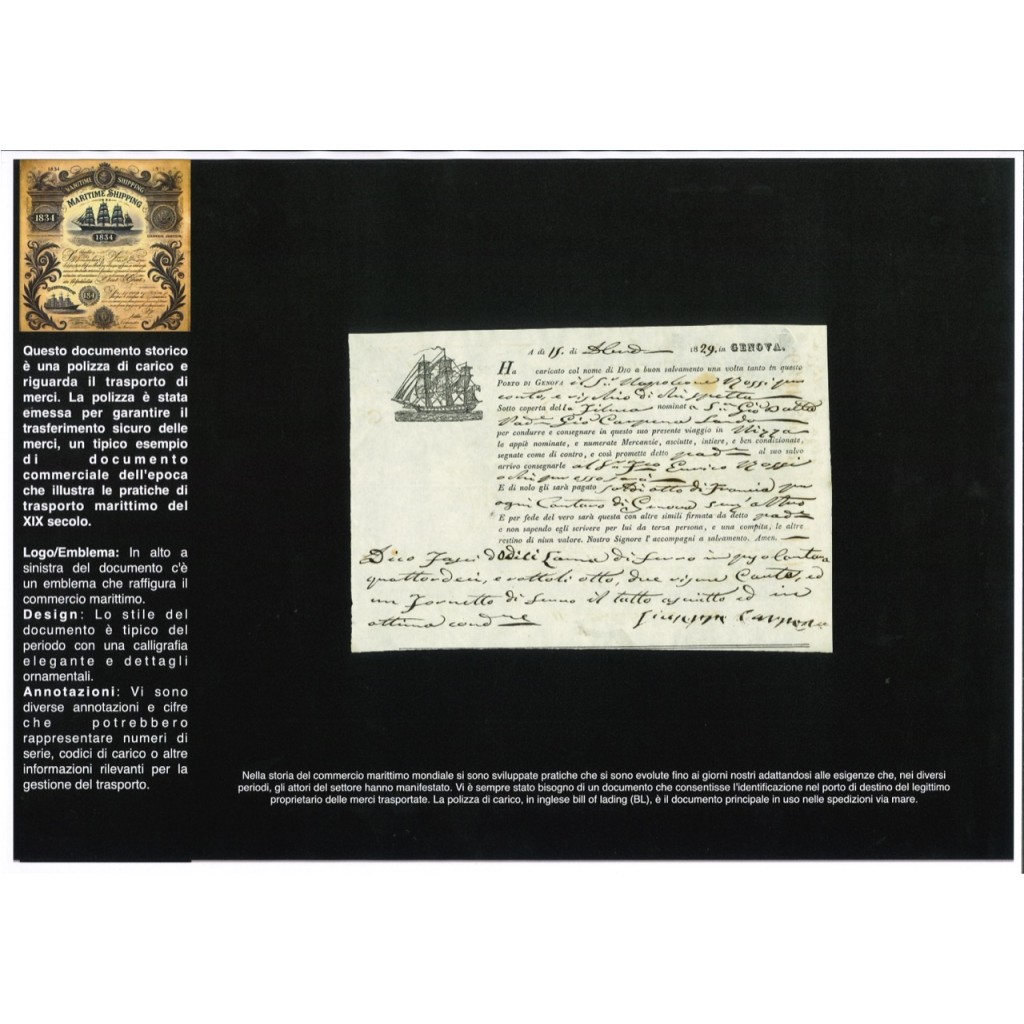 1834
MARITIME SHIPPING
MARITIME SHIPPING
1834
1834
Questo documento storico
è una polizza di carico e
riguarda il trasporto di
merci. La polizza è stata
emessa per garantire il
trasferimento sicuro delle
merci, un tipico esempio
di documento
commerciale dell'epoca
che illustra le pratiche di
trasporto marittimo del
XIX secolo.
Logo/Emblema: In alto a
sinistra del documento c'è
un emblema che raffigura il
commercio marittimo.
Design: Lo stile del
documento è tipico del
periodo con una calligrafia
elegante e dettagli
ornamentali.
Annotazioni: Vi sono
diverse annotazioni e cifre
che potrebbero
rappresentare numeri di
serie, codici di carico o altre
informazioni rilevanti per la
gestione del trasporto.
A dì 15. di 1829. in GENOVA.
Ha caricato col nome di Dio a buon salvamento una volta tanto in questo
PORTO DI GENOVA il Sr. Napoleone Rossi per
conto, e rischio di chi spetta
Sotto coperta della Filuca nominata Sn. Gio Batta
Padn. Gio Carpena
per condurre e consegnare in questo suo presente viaggio in Nizza
le appiè nominate, e numerate Mercanzie, asciutte, intiere, e ben condizionate,
segnate come di contro, e così promette detto pad. al suo salvo
arrivo consegnarle al Sr. Enrico Rossi
o chi per esso sarà
E di nolo gli sarà pagato soldi otto di Francia per
ogni Cantaro di Genova senz'altro
E per fede del vero sarà questa con altre simili firmata da detto pad.
e non sapendo egli scrivere per lui da terza persona, e una compita, le altre
restino di niun valore. Nostro Signore l'accompagni a salvamento. Amen.
Dico Fasci dodici di ferro in peso
quattordici, e rottoli otto, due, ed
un Fornetto di ferro il tutto asciutto ed in
ottima cond.ne Giuseppe Carpena
Nella storia del commercio marittimo mondiale si sono sviluppate pratiche che si sono evolute fino ai giorni nostri adattandosi alle esigenze che, nei diversi
periodi, gli attori del settore hanno manifestato. Vi è sempre stato bisogno di un documento che consentisse l'identificazione nel porto di destino del legittimo
proprietario delle merci trasportate. La polizza di carico, in inglese bill of lading (BL), è il documento principale in uso nelle spedizioni via mare.